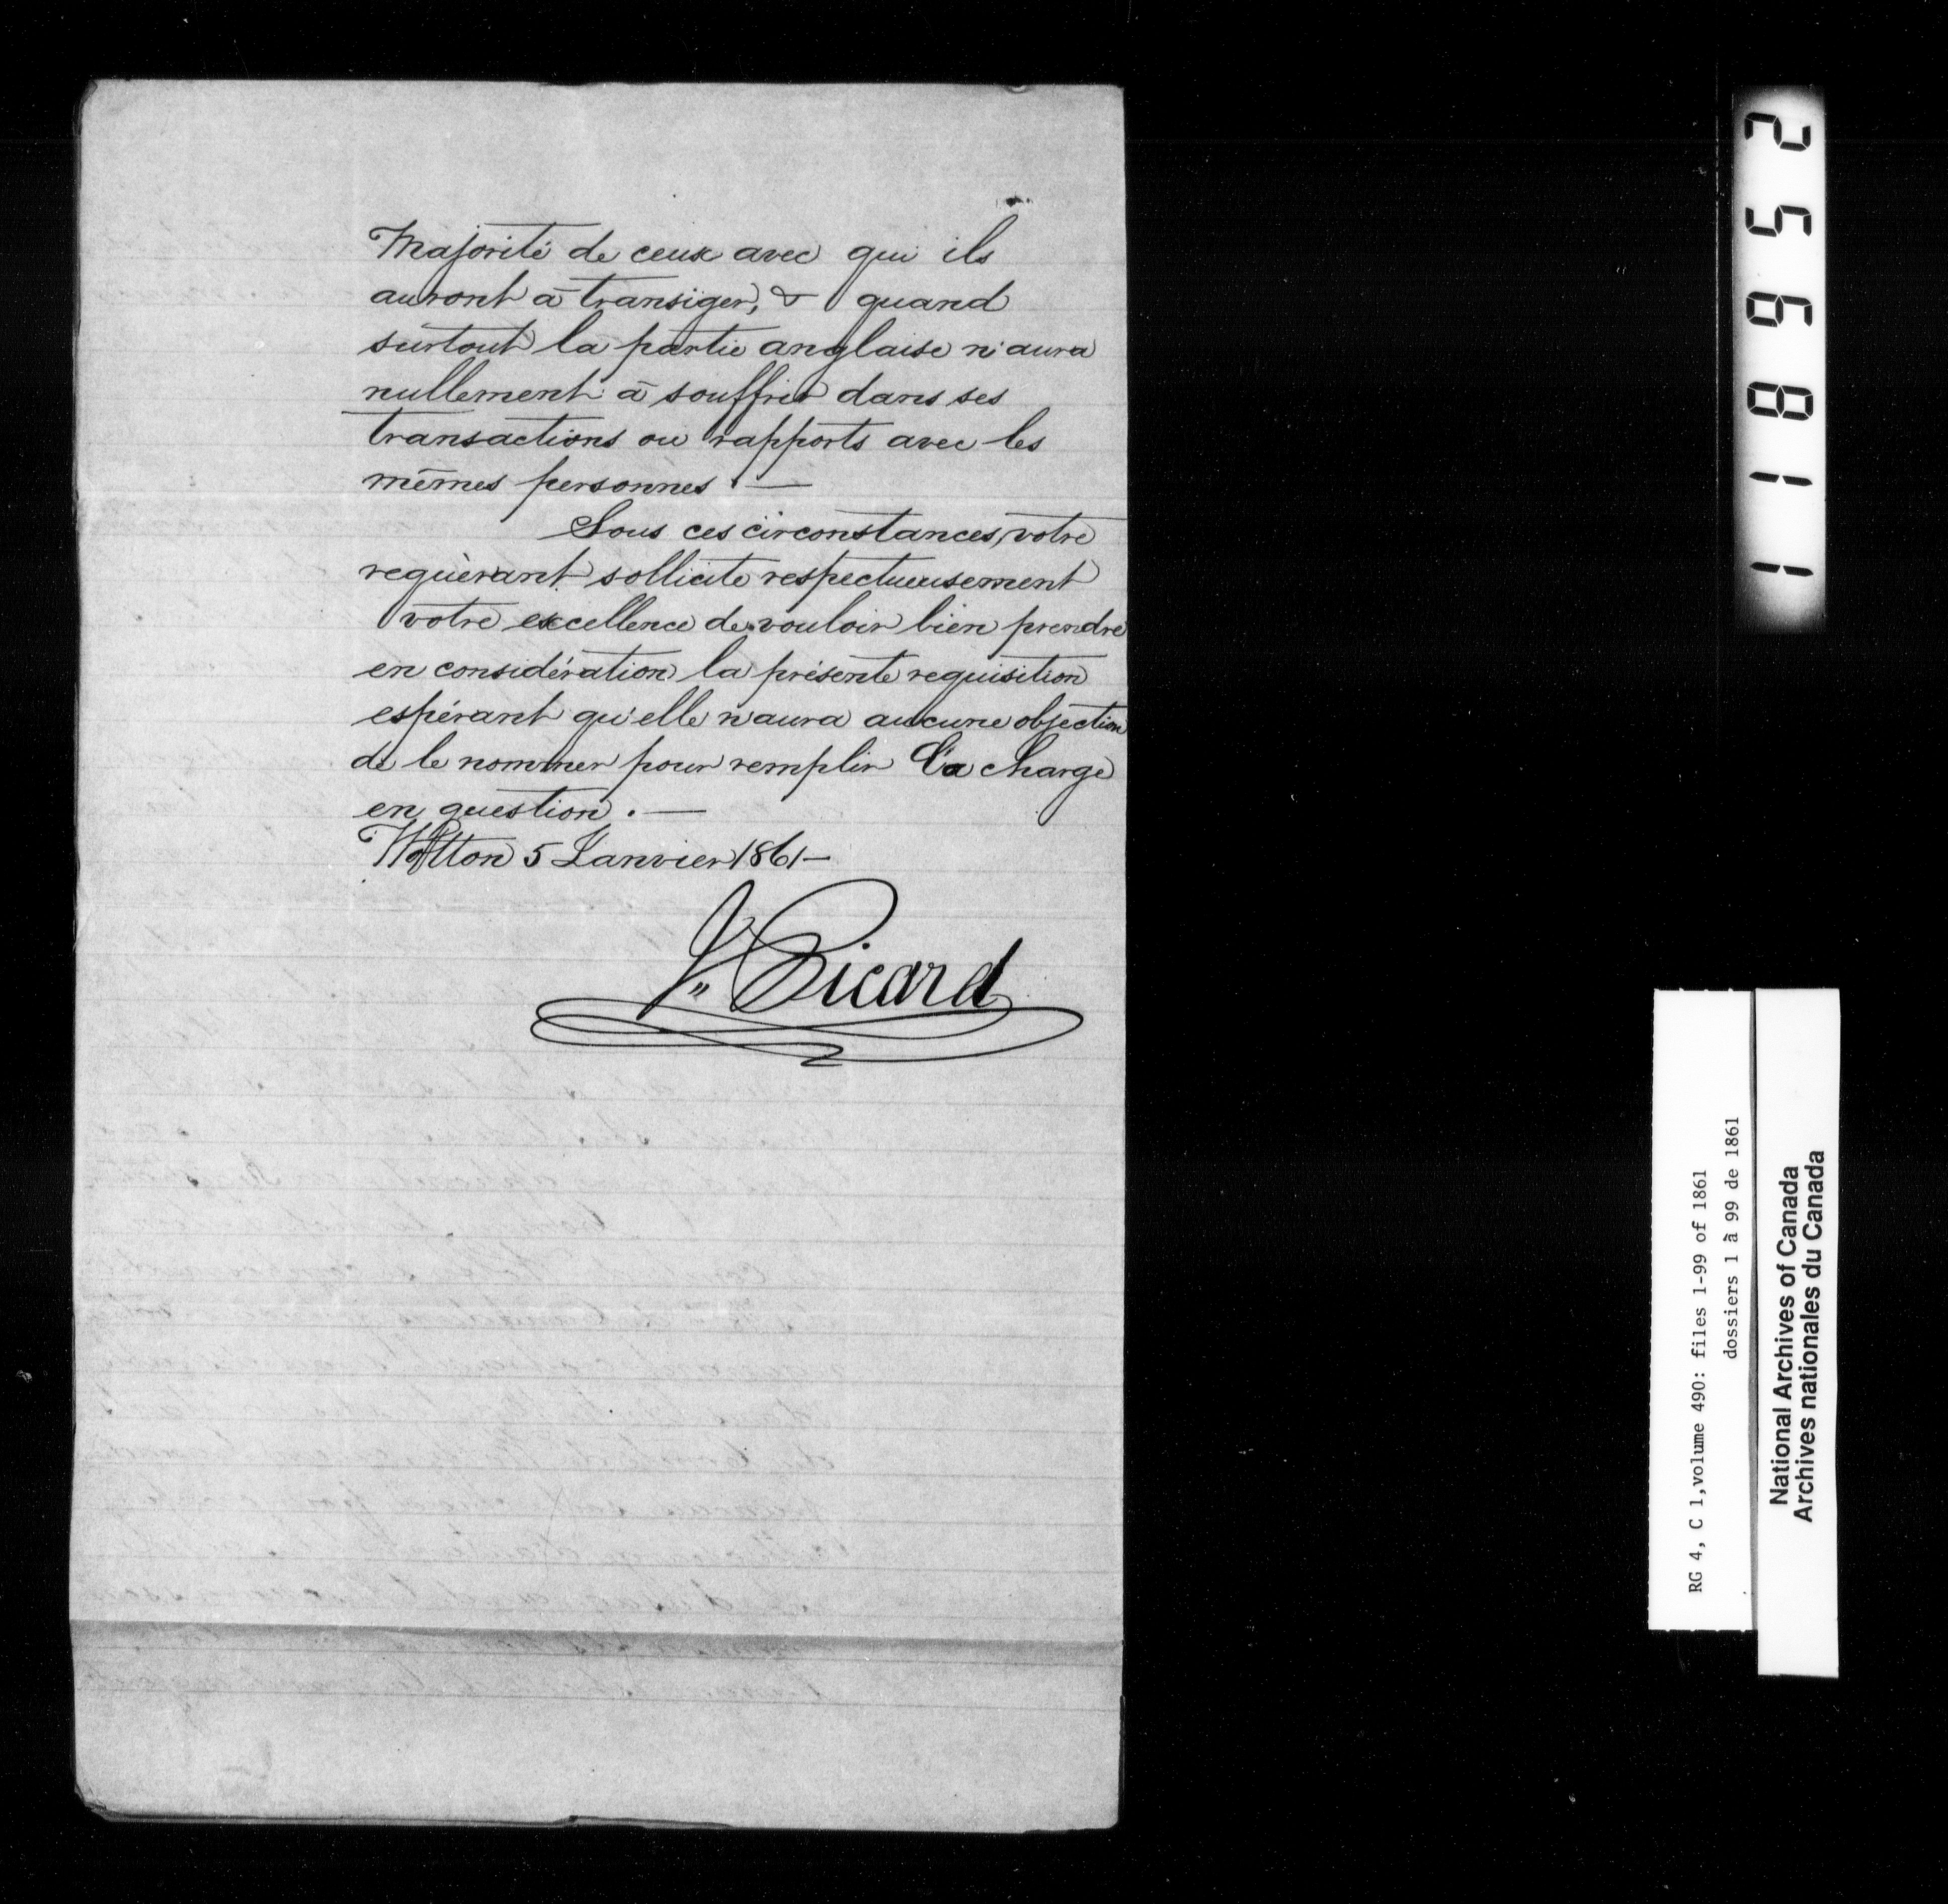 Majorité de ceux avec qui ils
auront à transiger, & quand
surtout la partie anglaise n'aura
nullement à souffrir dans ses
transactions ou rapports avec les
mêmes personnes. —
Sous ces circonstances, votre
requèrant sollicite respectueusement
votre excellence de vouloir bien prendre
en considération la présente requisition
espérant qu'elle n'aura aucune objection
de le nommer pour remplir la charge
en question. —
Wotton 5 Janvier 1861 —
Picard
1186952
RG 4, C 1, volume 490: files 1-99 of 1861
dossiers 1 à 99 de 1861
National Archives of Canada
Archives nationales du Canada